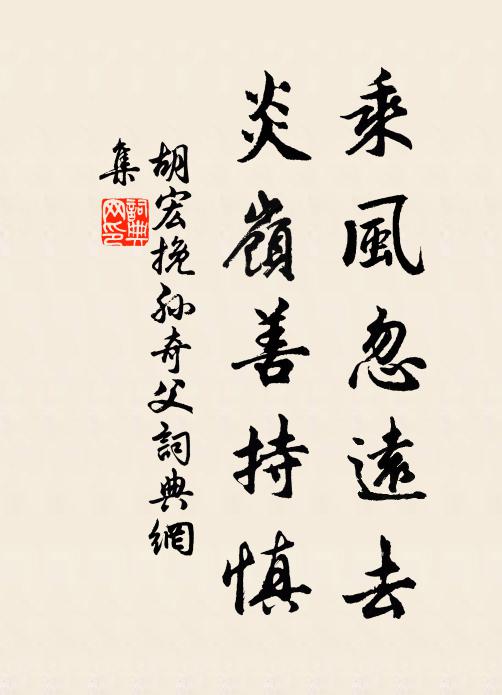 乘風忽遠去
炎嶺善持慎
胡宏挽孫奇父詞典網
集
詞典
网印